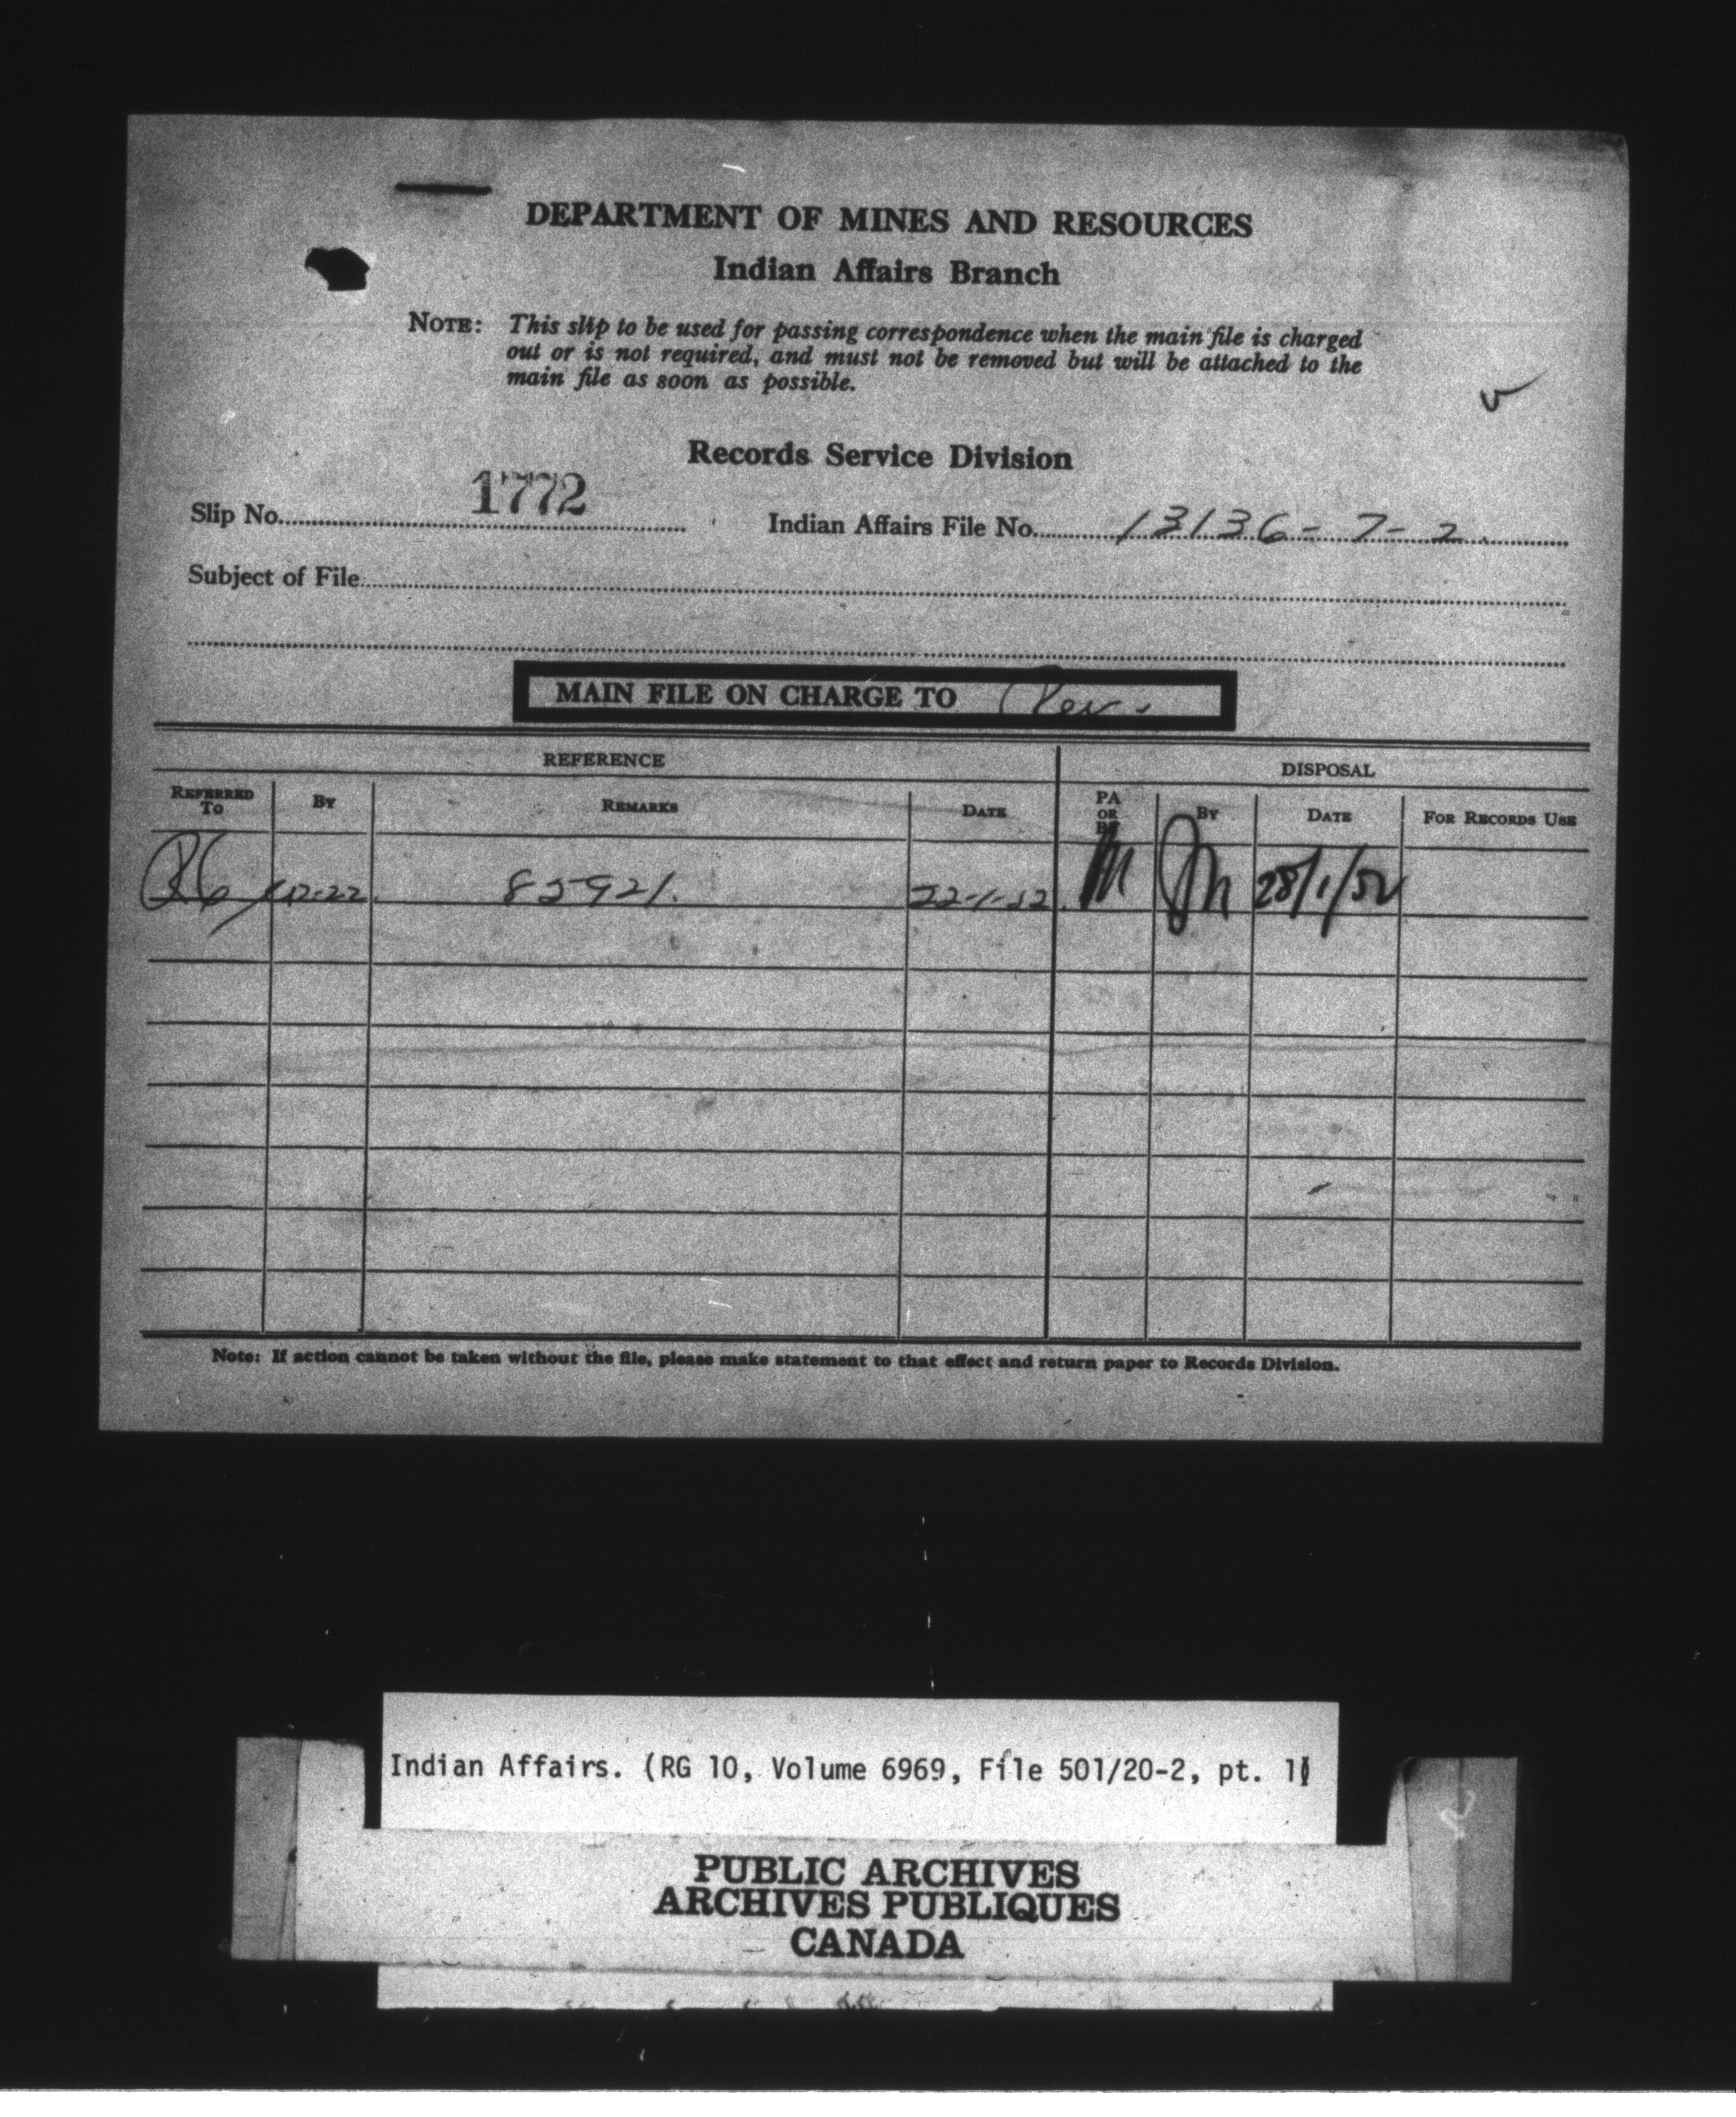 DEPARTMENT OF MINES AND RESOURCES
Indian Affairs Branch
NOTE: This slip to be used for passing correspondence when the main file is charged
out or is not required, and must not be removed but will be attached to the
main file as soon as possible.
Records Service Division
Slip No. 1772 Indian Affairs File No. 13136-7-2.
Subject of File
MAIN FILE ON CHARGE TO
REFERENCE DISPOSAL
REFERRED TO BY REMARKS DATE PA OR BF BY DATE FOR RECORDS USE
R6 85921. 22-1-52 28/1/52
Note: If action cannot be taken without the file, please make statement to that effect and return paper to Records Division.
Indian Affairs. (RG 10, Volume 6969, File 501/20-2, pt. 1)
PUBLIC ARCHIVES
ARCHIVES PUBLIQUES
CANADA